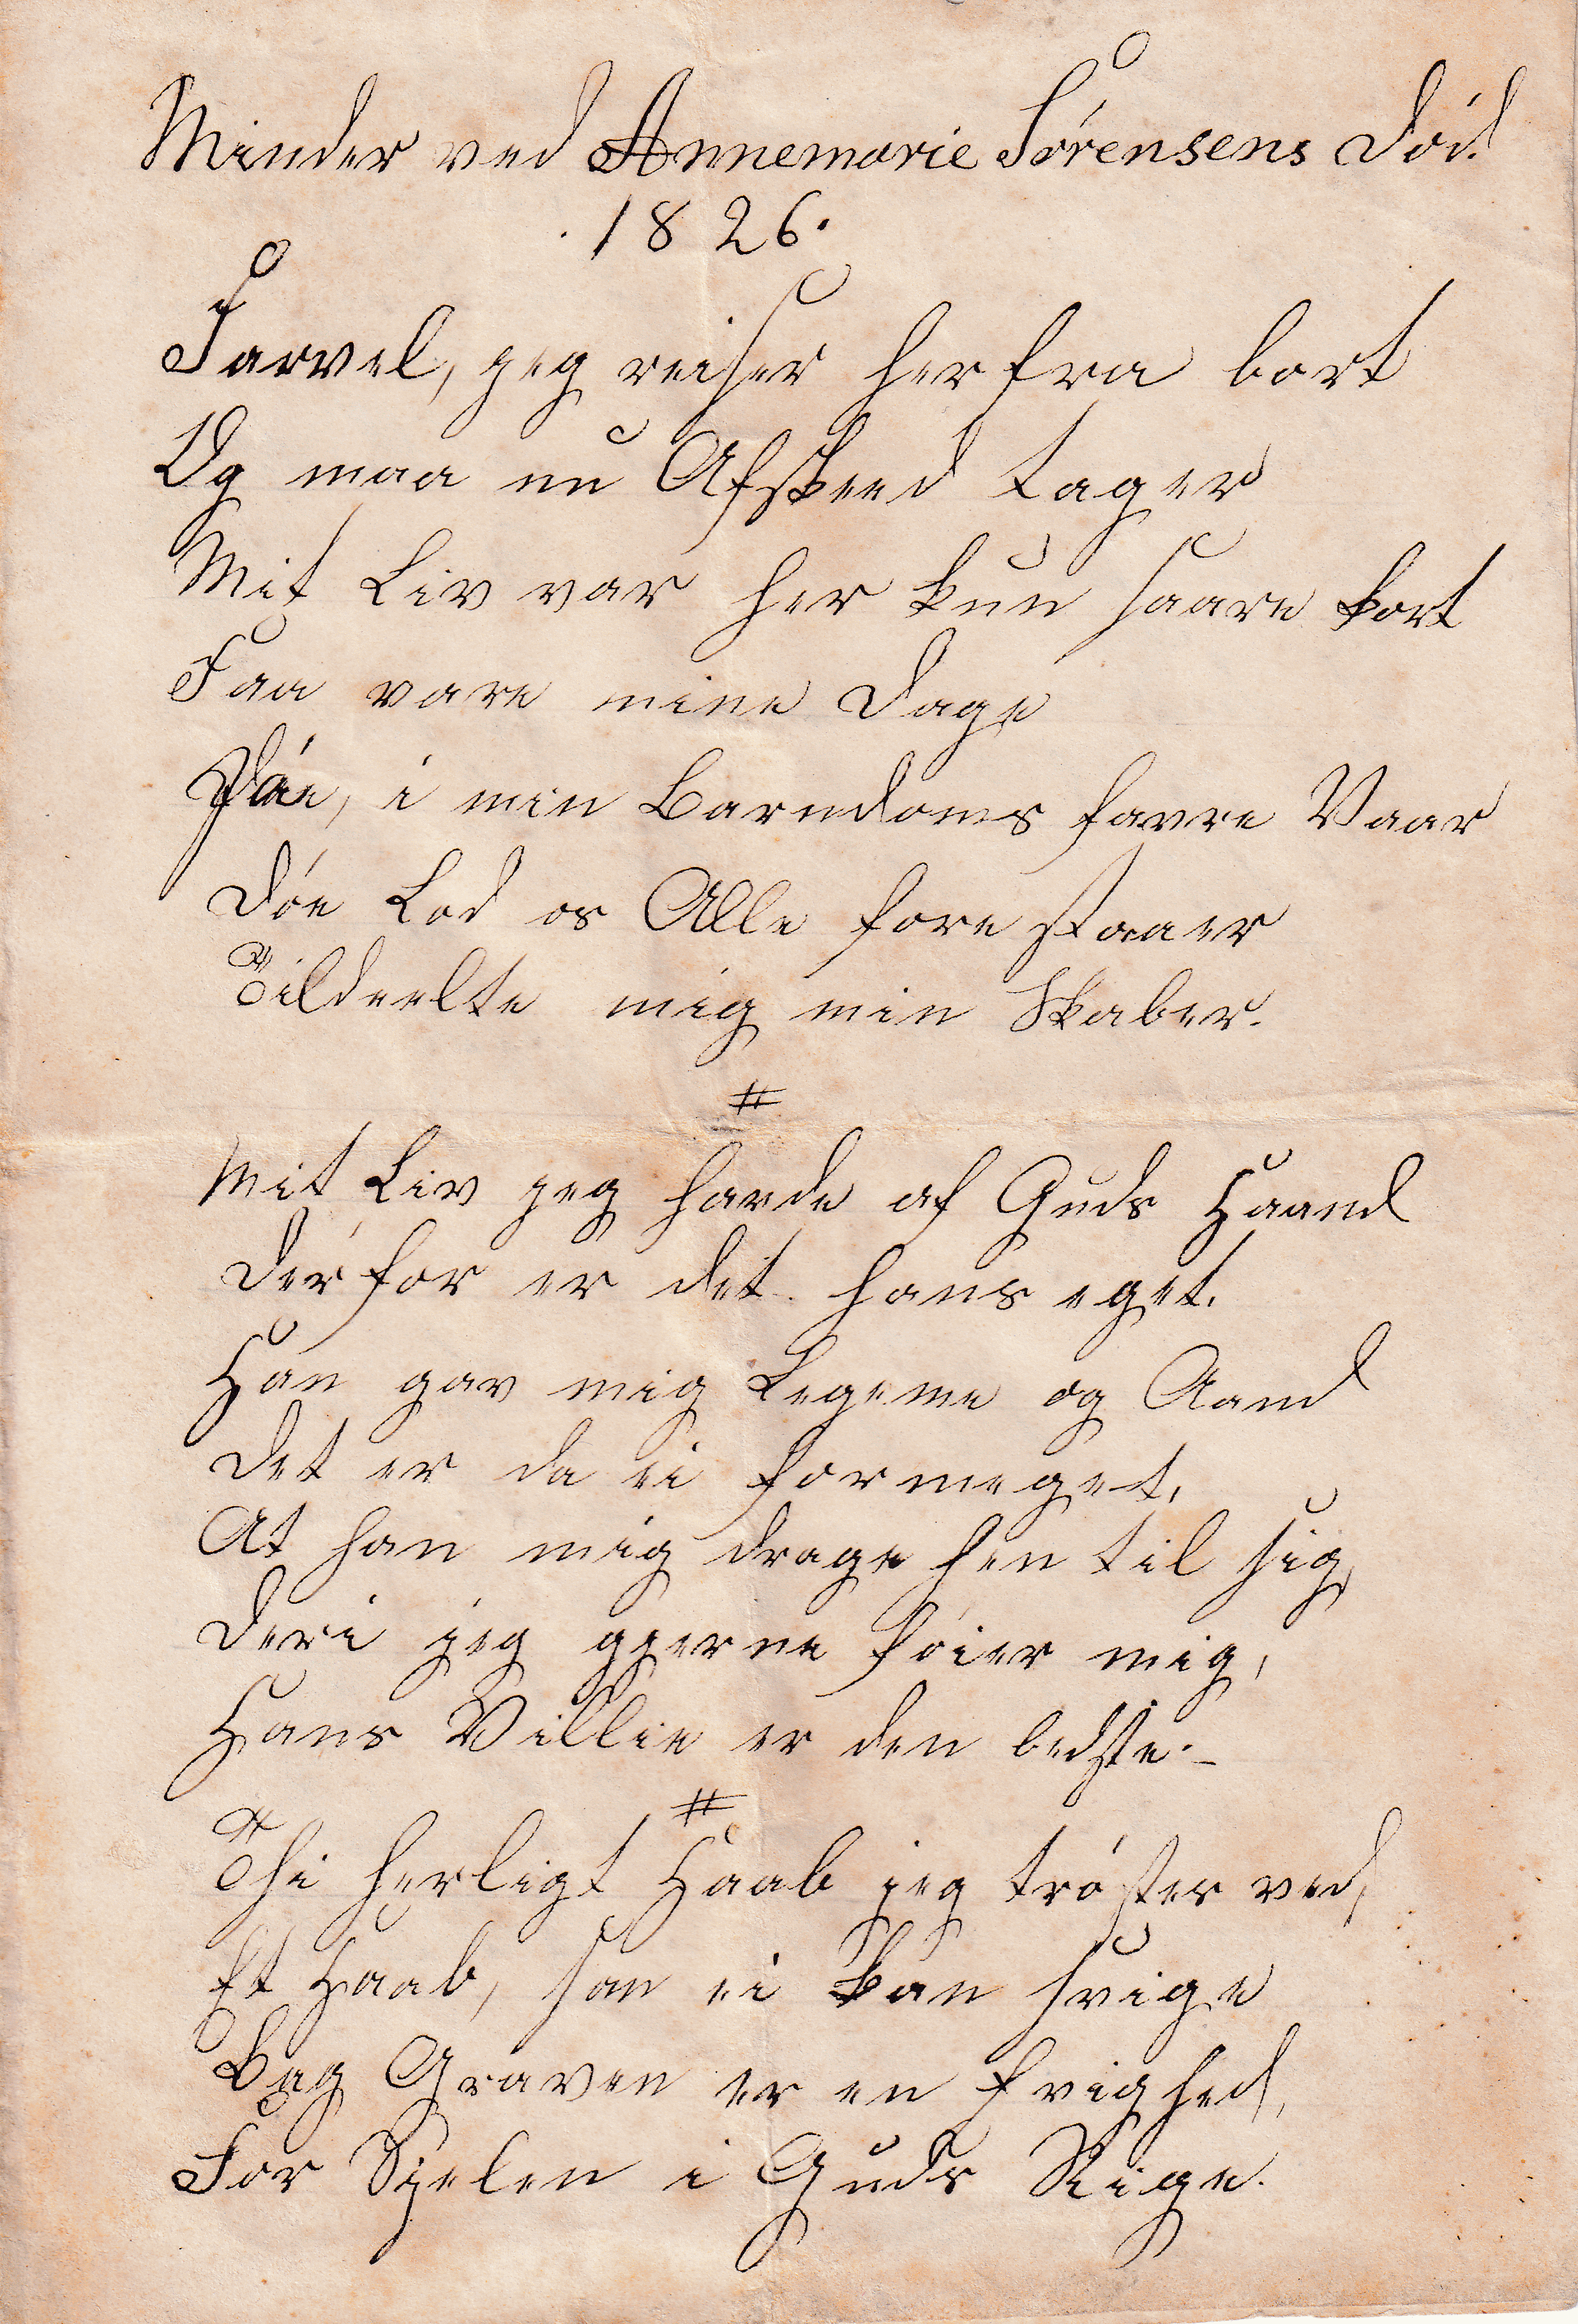 Minder ved Annemarie Sørensens Død.
1826.
Farvel, jeg reiser herfra bort
Og maa nu Afskeed tager
Mit Liv var her kun saare kort
Faa vare mine Dage
i min Barndoms favre Vaar
Døe Lod os Alle forestaaer
Tildeelte mig min Skaber.
#
Mit Liv jeg havde af Guds Haand
Derfor er det hans eget.
Han gav mig Legeme og Aand
Det er da ei formeget,
At han mig drage hen til sig,
Deri jeg gjerne føier mig,
Hans Villie er den bedste.-
#
Thi herligt Haab jeg trøster ved,
Et Haab, som ei kan svige
Bag Graven er en Evighed,
For Sjelen i Guds Rige.